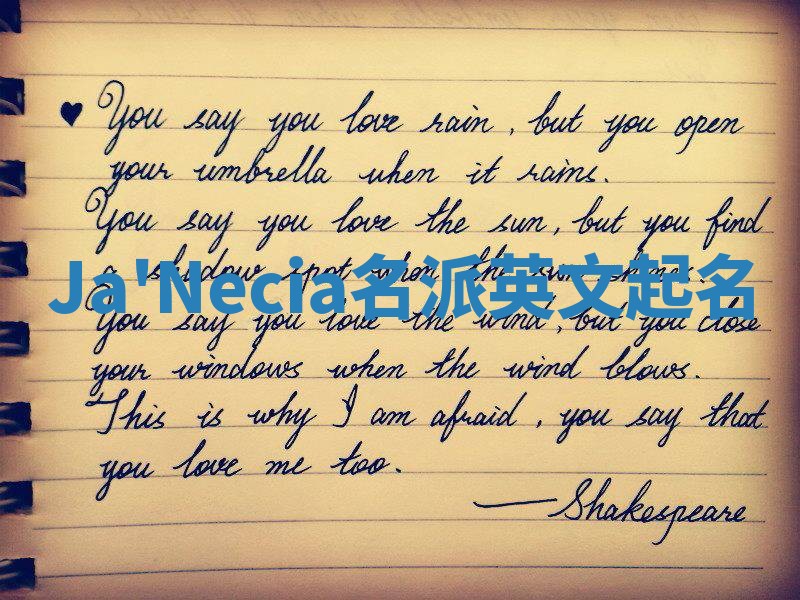 ♥ You say you love rain, but you open
your umbrella when it rains.
You say you love the sun, but you find
a shadow spot when the sun shines.
Ja'Necia名派英文起名
You say you love the wind, but you close
your windows when the wind blows.
This is why I am afraid, you say that
you love me too.
—Shakespeare